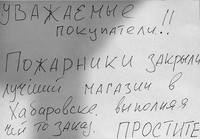 УВАЖАЕМЫЕ
покупатели..!!
ПОЖАРНИКИ ЗАКРЫЛИ
лучший магазин в
Хабаровске. выполняя
чей то заказ. ПРОСТИТЕ